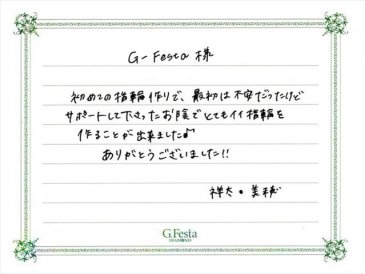 G-Festa 様
初めての指輪作りで、最初は不安だったけど
サポートして下さったお陰でとてもイイ指輪を
作ることが出来ました♪
ありがとうございました!!
祥太・美穂
G.Festa
DIAMOND